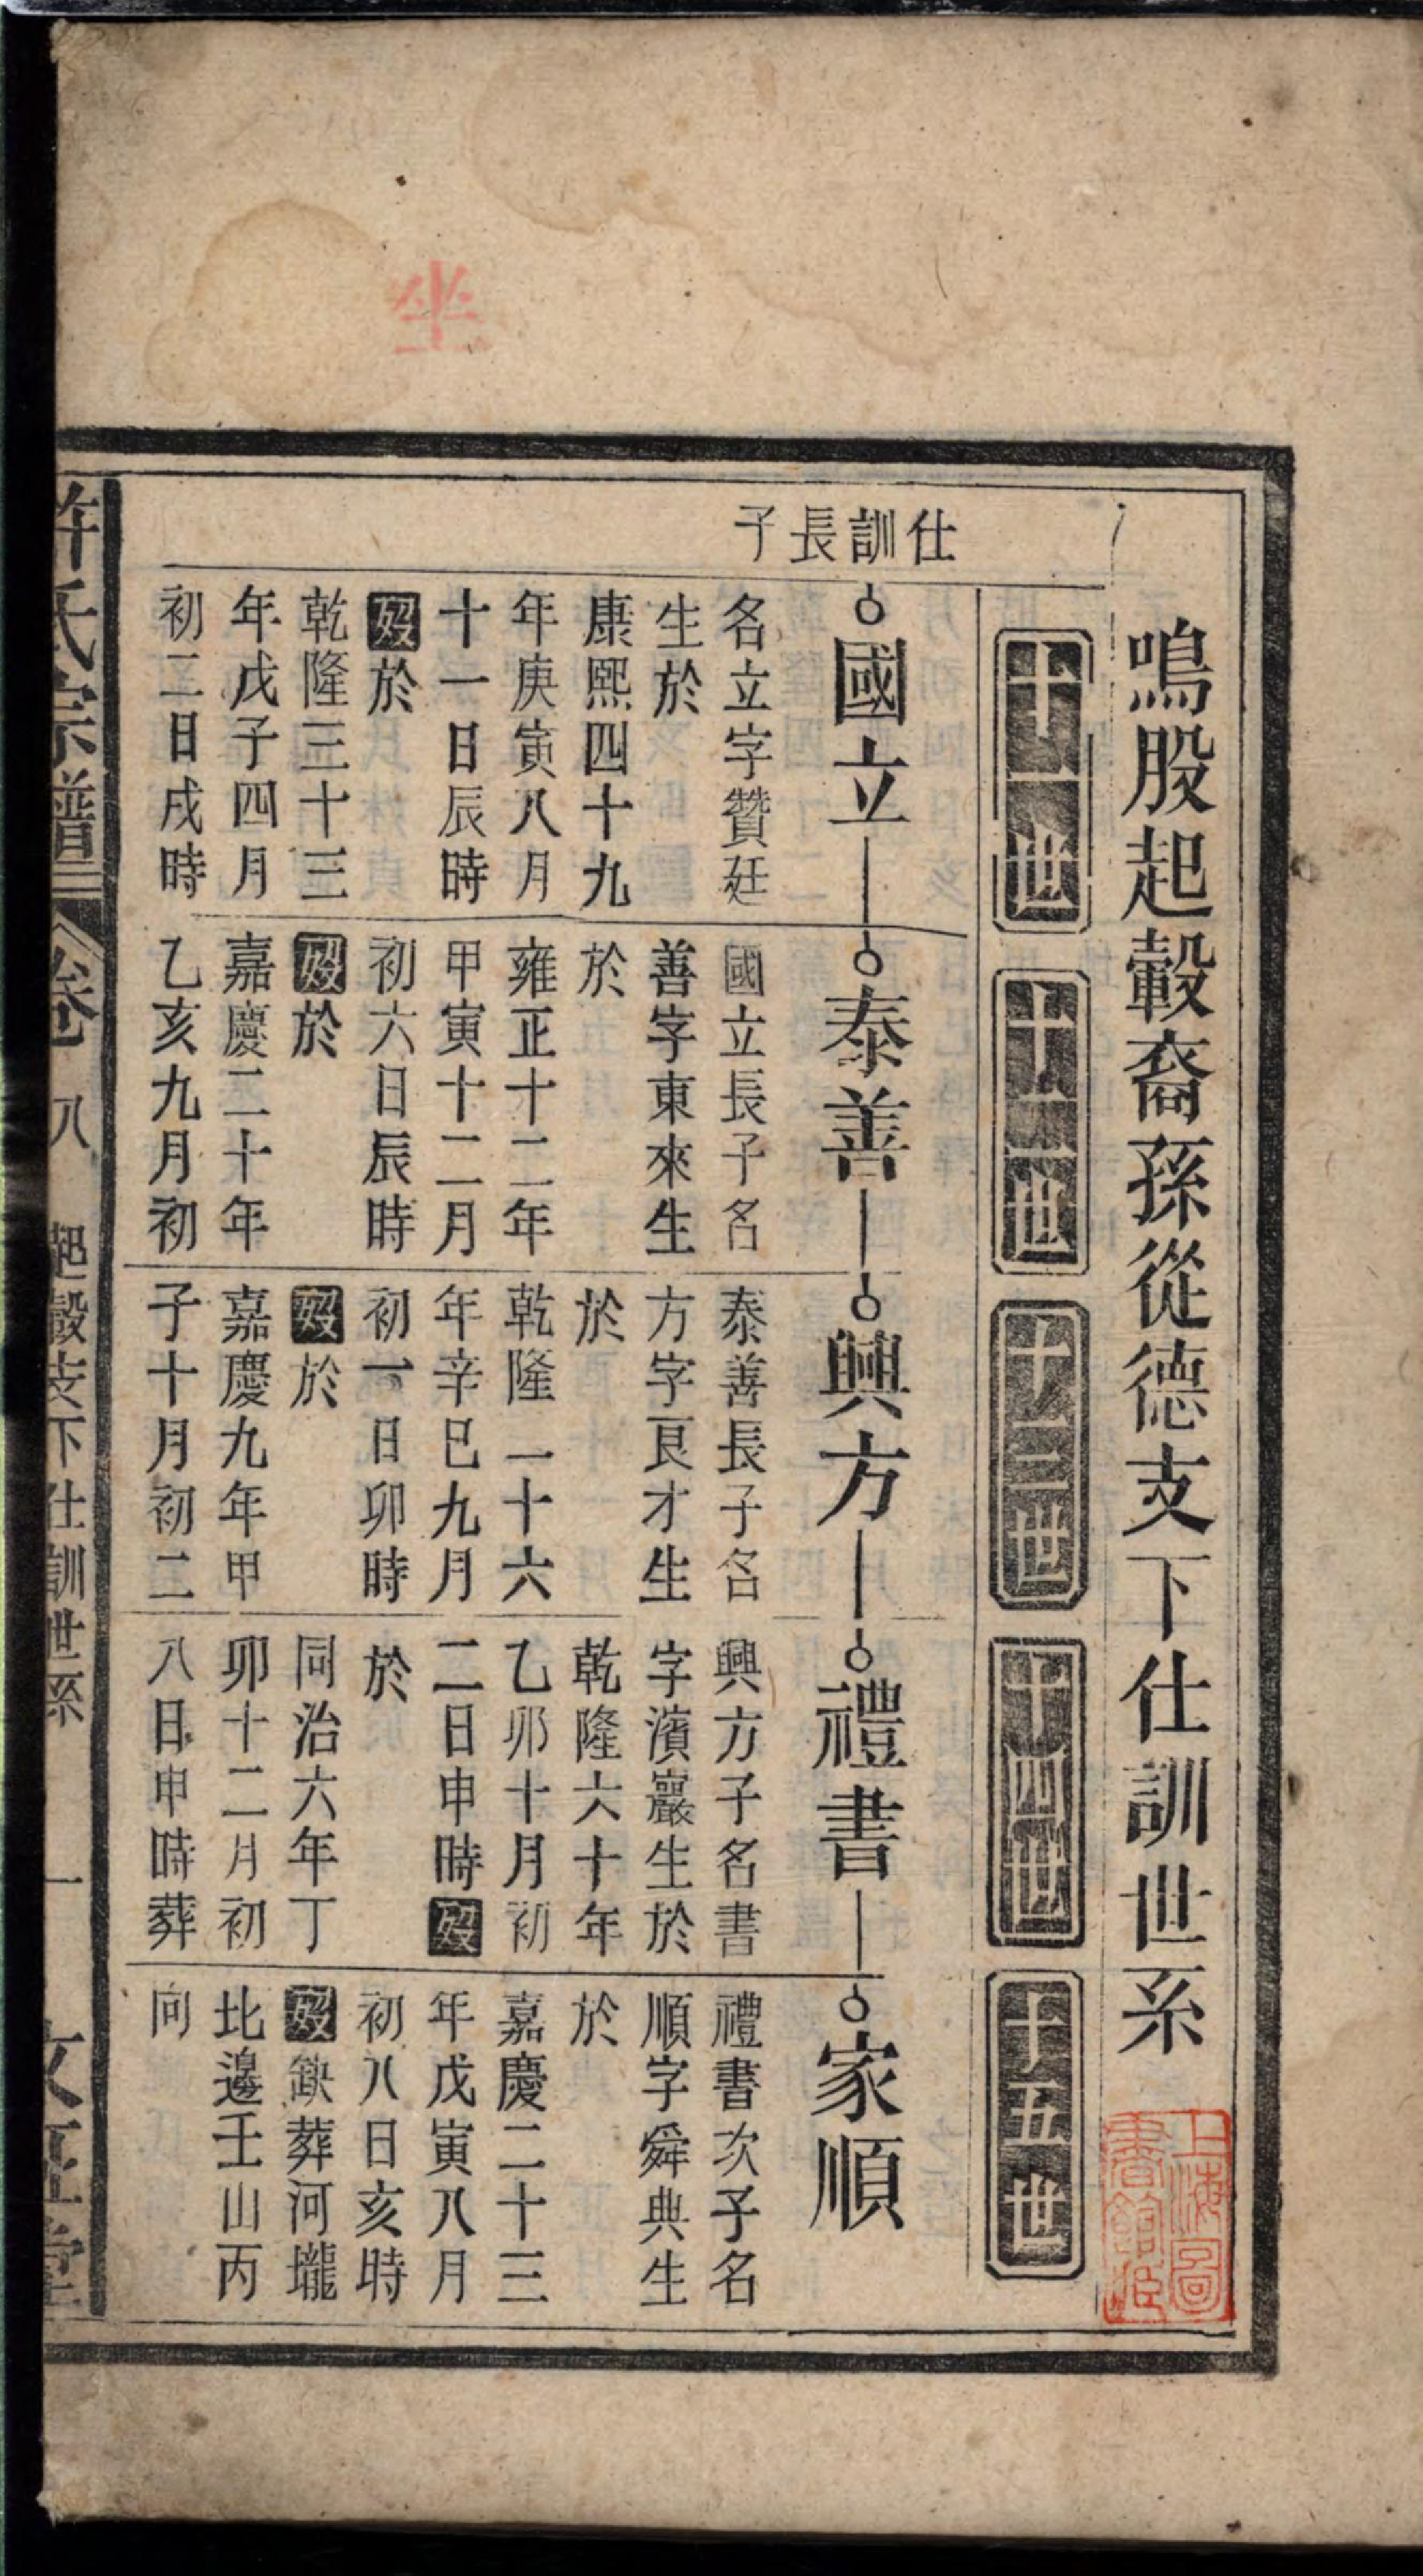 鳴股起轂裔孫從德支下仕訓世系
十一世
十二世
十三世
十四世
十五世
仕訓長子
國立
名立字贊廷
生於
康熙四十九
年庚寅八月
十一日辰時
歿於
乾隆三十三
年戊子四月
初二日戌時
泰善
國立長子名
善字東來生
於
雍正十二年
甲寅十二月
初六日辰時
歿於
嘉慶二十年
乙亥九月初
興方
泰善長子名
方字良才生
於
乾隆二十六
年辛巳九月
初一日卯時
歿於
嘉慶九年甲
子十月初二
禮書
興方子名書
字濱巖生於
乾隆六十年
乙卯十月初
二日申時歿
於
同治六年丁
卯十二月初
八日申時葬
家順
禮書次子名
順字舜典生
於
嘉慶二十三
年戊寅八月
初八日亥時
歿缺葬河壠
北邊壬山丙
向
許氏宗譜
卷八
起轂支下仕訓世系
一
坐
上海圖書館藏